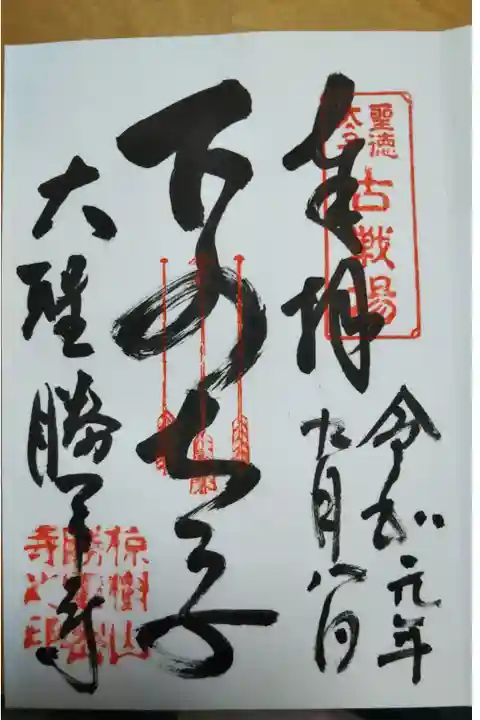 聖徳
太子
古戦場
奉拝
令和元年
九月八日
下の太子
大聖勝軍寺
椋樹山
勝軍
寺之印